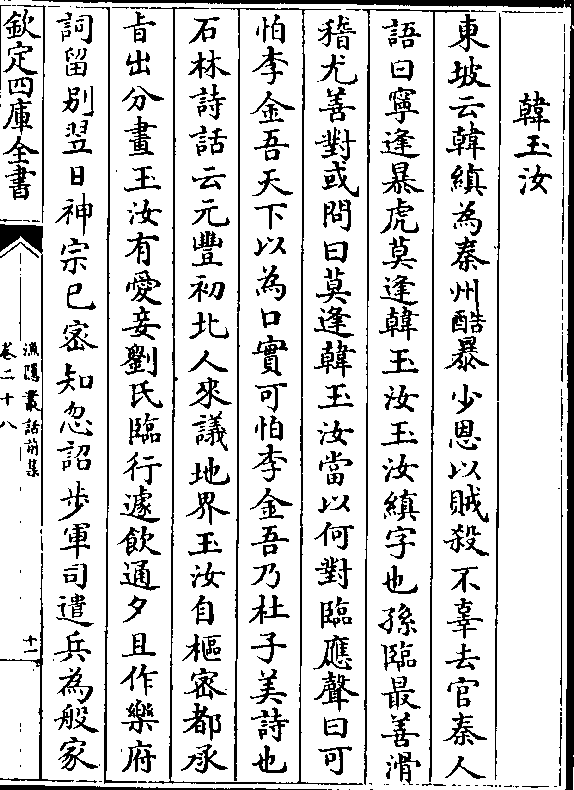 韓玉汝
東坡云韓縝為秦州酷暴少恩以賊殺不辜去官秦人
語曰寧逢暴虎莫逢韓玉汝玉汝縝字也孫臨最善滑
稽尤善對或問曰莫逢韓玉汝當以何對臨應聲曰可
怕李金吾天下以為口實可怕李金吾乃杜子美詩也
石林詩話云元豐初北人來議地界玉汝自樞密都承
㫖出分畫玉汝有愛妾劉氏臨行遽飲通夕且作樂府
詞留别翌日神宗已密知忽詔步軍司遣兵為般家
欽定四庫全書
漁隱叢話前集
卷二十八
十一